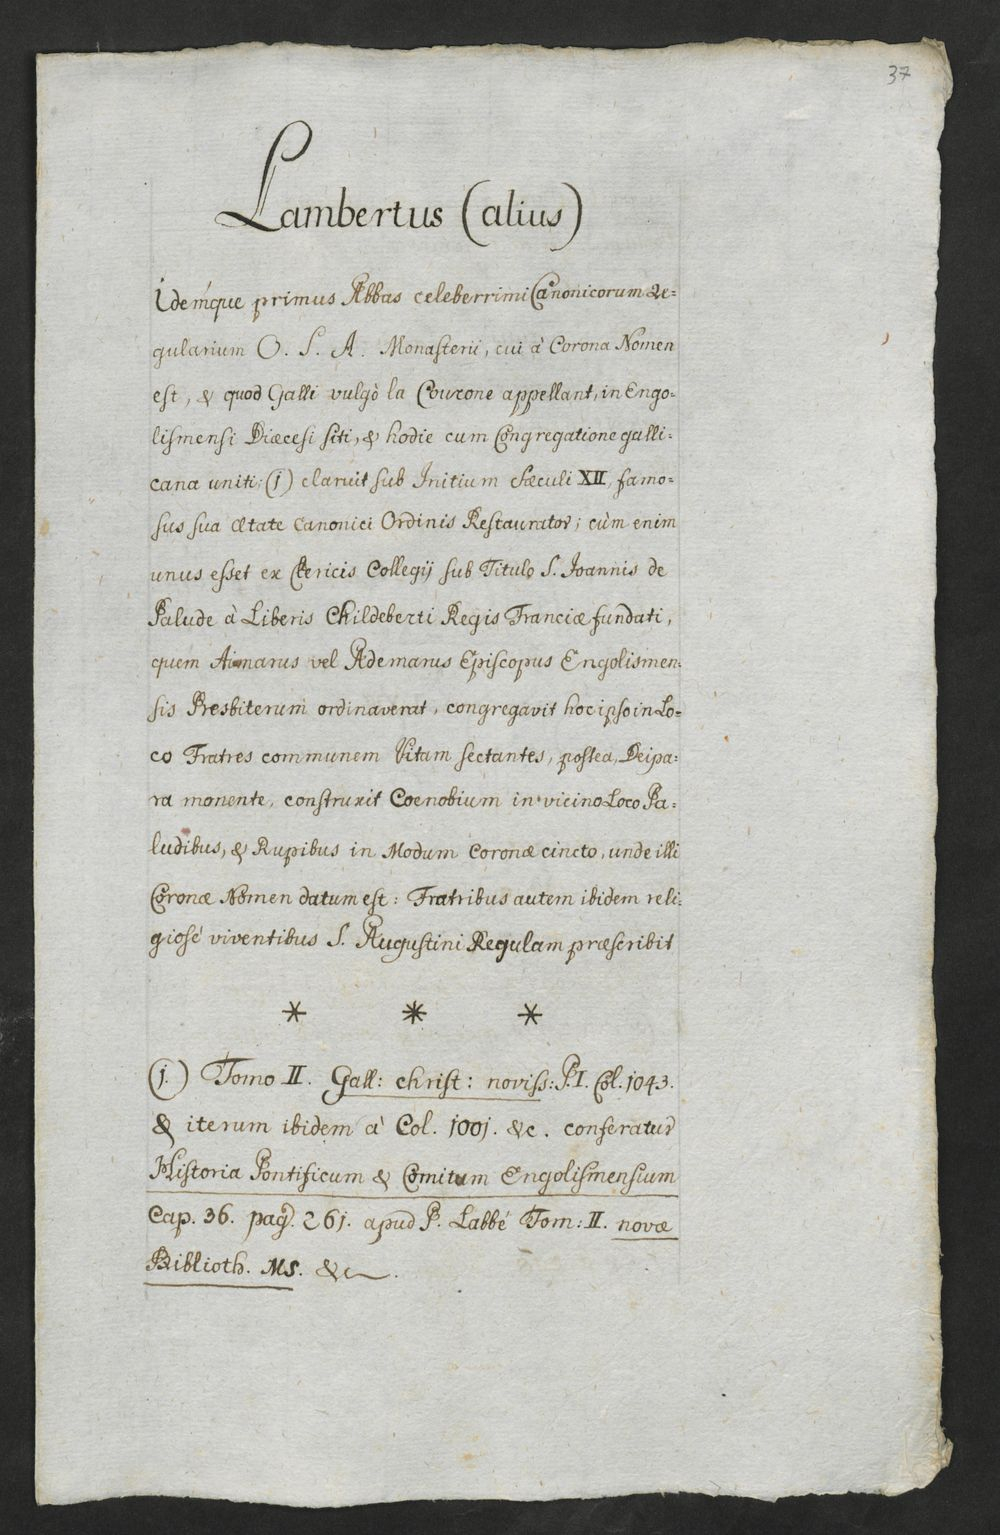 37
Lambertus (alius)
Idemque primus Abbas celeberrimi Canonicorum Re=
gularium O. S. A. Monasterii, cui à Corona Nomen
est, & quod Galli vulgò la Courone appellant, in Engo=
lismensi Diœcesi siti, & hodie cum Congregatione galli=
cana uniti; (1) claruit sub Initium Sæculi XII, famo=
sus sua ætate canonici Ordinis Restaurator; cùm enim
unus esset ex Clericis Collegij sub Titulo S. Joannis de
Palude à Liberis Childeberti Regis Franciæ fundati,
quem Aimarus vel Ademarus Episcopus Engolismen=
sis Presbiterum ordinaverat, congregavit hoc ipso in Lo=
co Fratres communem Vitam sectantes, postea, Deipa=
ra monente, construxit Coenobium in vicino Loco Pa=
ludibus, & Rupibus in Modum Coronæ cincto, unde illi
Coronæ Nomen datum est: Fratribus autem ibidem reli=
giosè viventibus S. Augustini Regulam præscribit
* * *
(1.) Tomo II. Gall: christ: noviss: P. I. Col. 1043.
& iterum ibidem à Col. 1001. &c. conferatur
Historia Pontificum & Comitum Engolismensium
Cap. 36. pag. 261. apud P. Labbé Tom: II. novæ
Biblioth. MS. &c.